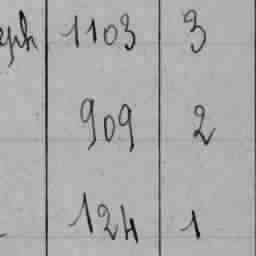 eph 1103 3
909 2
124 1